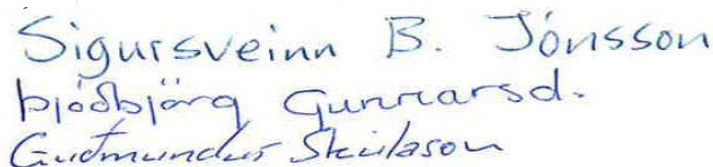 Sigursveinn B. Jónsson
Þjóðbjörg Gunnarsd.
Guðmundur Skúlason